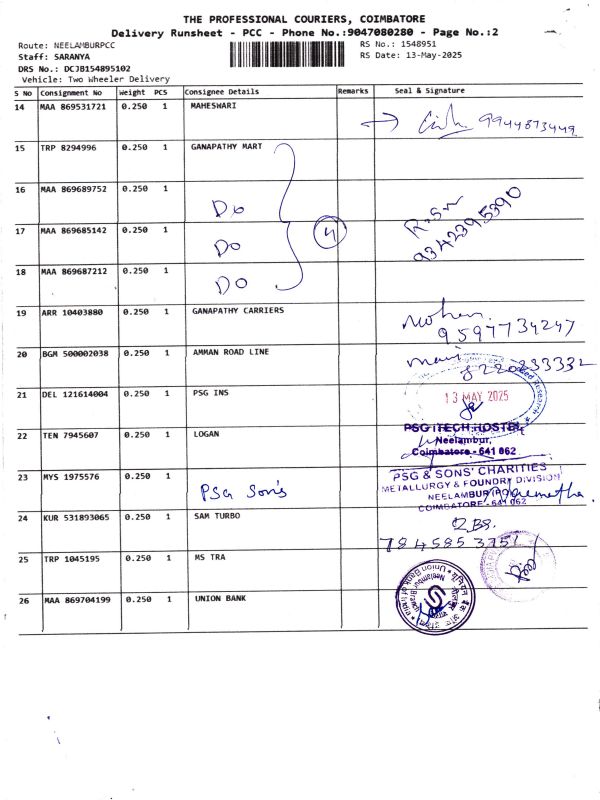 THE PROFESSIONAL COURIERS, COIMBATORE
Delivery Runsheet - PCC - Phone No.:9047080280 - Page No.:2
Route: NEELAMBURPCC
RS No.: 1548951
Staff: SARANYA
RS Date: 13-May-2025
DRS No.: DCJB154895102
Vehicle: Two Wheeler Delivery
S No Consignment No Weight PCS Consignee Details Remarks Seal & Signature
14 MAA 869531721 0.250 1 MAHESWARI
9944873449
15 TRP 8294996 0.250 1 GANAPATHY MART
16 MAA 869689752 0.250 1 Do
17 MAA 869685142 0.250 1 Do 4
R.Sm
9342395390
18 MAA 869687212 0.250 1 Do
19 ARR 10403880 0.250 1 GANAPATHY CARRIERS Mohan
9597734247
20 BGM 500002038 0.250 1 AMMAN ROAD LINE Mani
8220233332
21 DEL 121614004 0.250 1 PSG INS
13 MAY 2025
PSG iTECH HOSTEL
22 TEN 7945607 0.250 1 LOGAN
Neelambur,
Coimbatore - 641 062
23 MYS 1975576 0.250 1 PSG Son's
PSG & SONS' CHARITIES
METALLURGY & FOUNDRY DIVISION
NEELAMBUR (PO)
COIMBATORE - 641 062
24 KUR 531893065 0.250 1 SAM TURBO
7845853751
25 TRP 1045195 0.250 1 MS TRA
26 MAA 869704199 0.250 1 UNION BANK
Union Bank of India
Neelambur Branch